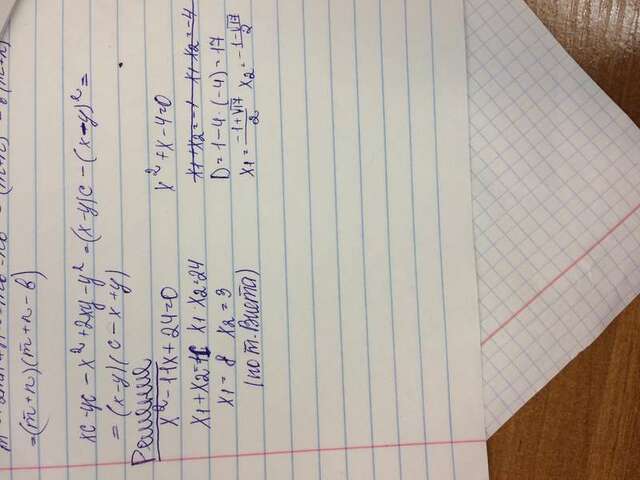 = (m+n)(m+n-в)
xc - yc - x² + 2xy - y² = (x-y)c - (x-y)² =
= (x-y)(c-x+y)
Решение
x² - 11x + 24 = 0
x1 + x2 = 11 x1 · x2 = 24
x1 = 8 x2 = 3
(по т. Виета)
x² + x - 4 = 0
x1 + x2 = -1 x1 · x2 = -4
D = 1 - 4 · (-4) = 17
x1 = (-1+√17)/2 x2 = (-1-√17)/2